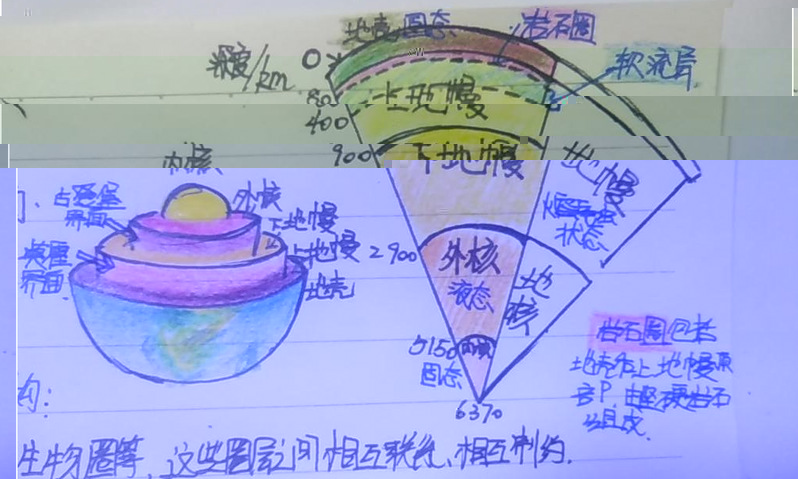 地壳 固态
岩石圈
软流层
深度/km
0
80
400
900
2900
5150
6370
上地幔
下地幔
地幔
状态
外核
液态
地核
内核
固态
内核
外核
下地幔
上地幔
地壳
古登堡
界面
莫霍
界面
岩石圈包括
地壳和上地幔顶
部,由坚硬岩石
组成.
构:
生物圈等,这些圈层之间相互联系、相互制约.